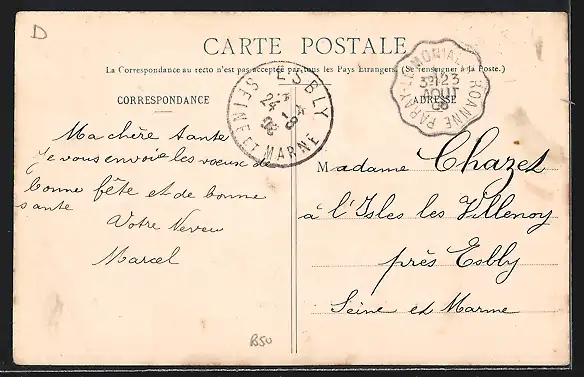 D
CARTE POSTALE
La Correspondance au recto n'est pas acceptée par tous les Pays Étrangers. (Se renseigner à la Poste.)
CORRESPONDANCE
ADRESSE
ESBLY
24 -8
SEINE ET MARNE
PARAY-LE-MONIAL A ROANNE
23
AOUT
Ma chère tante
je vous envoie les vœux de
bonne fête et de bonne
sante
Votre Neveu
Marcel
Madame Chazet
à l'Isles les Villenoy
près Esbly
Seine et Marne
B50